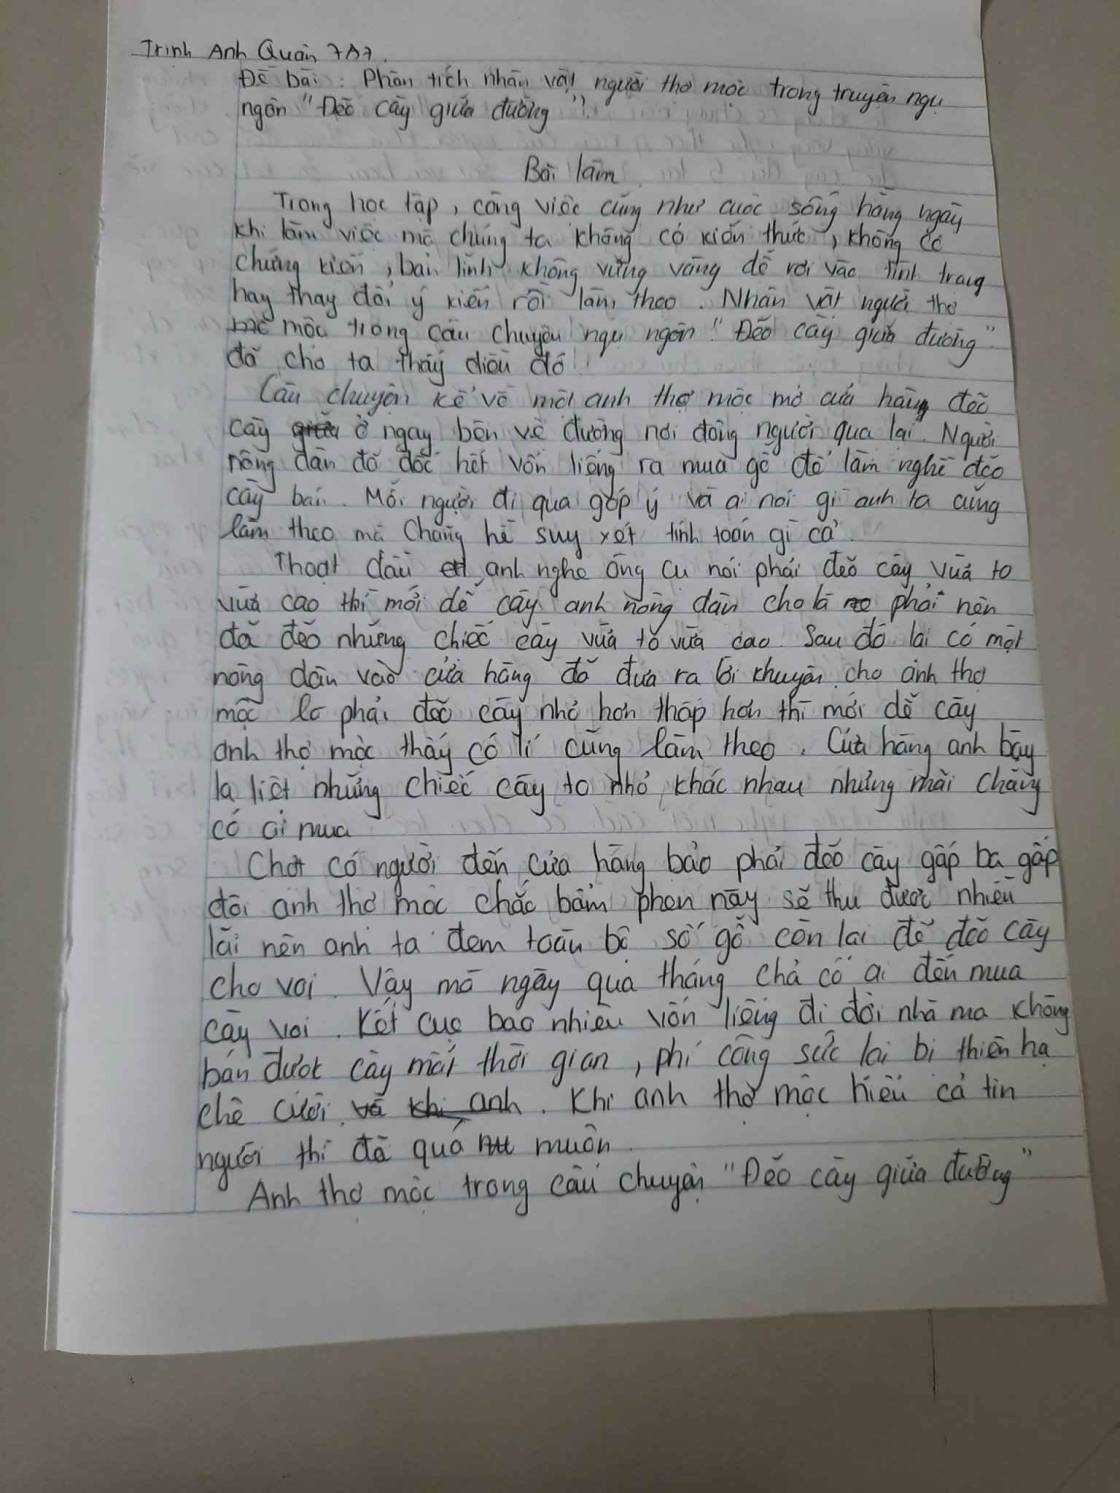 Trịnh Anh Quân 7A7.
Đề bài: Phân tích nhân vật người thợ mộc trong truyện ngụ
ngôn "Đẽo cày giữa đường".
Bài làm
Trong học tập, công việc cũng như cuộc sống hàng ngày
khi làm việc mà chúng ta không có kiến thức, không có
chứng kiến, bản lĩnh không vững vàng dễ rơi vào tình trạng
hay thay đổi ý kiến rồi làm theo. Nhân vật người thợ
mộc trong câu chuyện ngụ ngôn "Đẽo cày giữa đường"
đã cho ta thấy điều đó!
Câu chuyện kể về một anh thợ mộc mở cửa hàng đẽo
cày ở ngay bên vệ đường nơi đông người qua lại. Người
nông dân đó dốc hết vốn liếng ra mua gỗ để làm nghề đẽo
cày bán. Mỗi người đi qua góp ý và ai nói gì anh ta cũng
làm theo mà chẳng hề suy xét tính toán gì cả.
Thoạt đầu anh nghe ông cụ nói phải đẽo cày vừa to
vừa cao thì mới dễ cày anh nông dân cho là phải nên
đã đẽo những chiếc cày vừa to vừa cao. Sau đó lại có một
nông dân vào cửa hàng đã đưa ra lời khuyên cho anh thợ
mộc là phải đẽo cày nhỏ hơn thấp hơn thì mới dễ cày
anh thợ mộc thấy có lí cũng làm theo. Cửa hàng anh bày
la liệt những chiếc cày to nhỏ khác nhau nhưng mãi chẳng
có ai mua.
Chợt có người đến cửa hàng bảo phải đẽo cày gấp ba gấp
đôi anh thợ mộc chắc bẩm phen này sẽ thu được nhiều
lãi nên anh ta đem toàn bộ số gỗ còn lại để đẽo cày
cho voi. Vậy mà ngày qua tháng chả có ai đến mua
cày voi. Kết cục bao nhiêu vốn liếng đi đời nhà ma không
bán được cày mất thời gian, phí công sức lại bị thiên hạ
chê cười. Khi anh thợ mộc hiểu cả tin
người thì đã quá muộn.
Anh thợ mộc trong câu chuyện "Đẽo cày giữa đường"